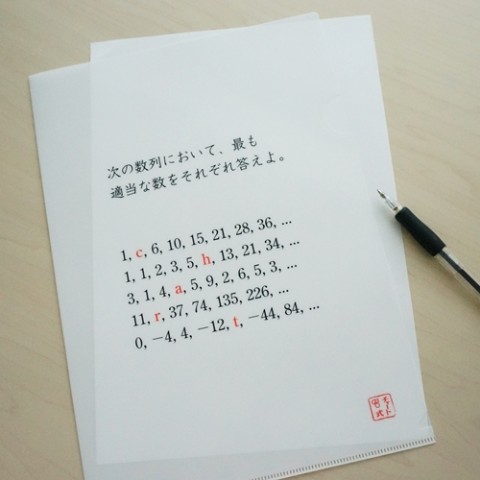 次の数列において、最も
適当な数をそれぞれ答えよ。
1, c, 6, 10, 15, 21, 28, 36, ...
1, 1, 2, 3, 5, h, 13, 21, 34, ...
3, 1, 4, a, 5, 9, 2, 6, 5, 3, ...
11, r, 37, 74, 135, 226, ...
0, −4, 4, −12, t, −44, 84, ...
チャート